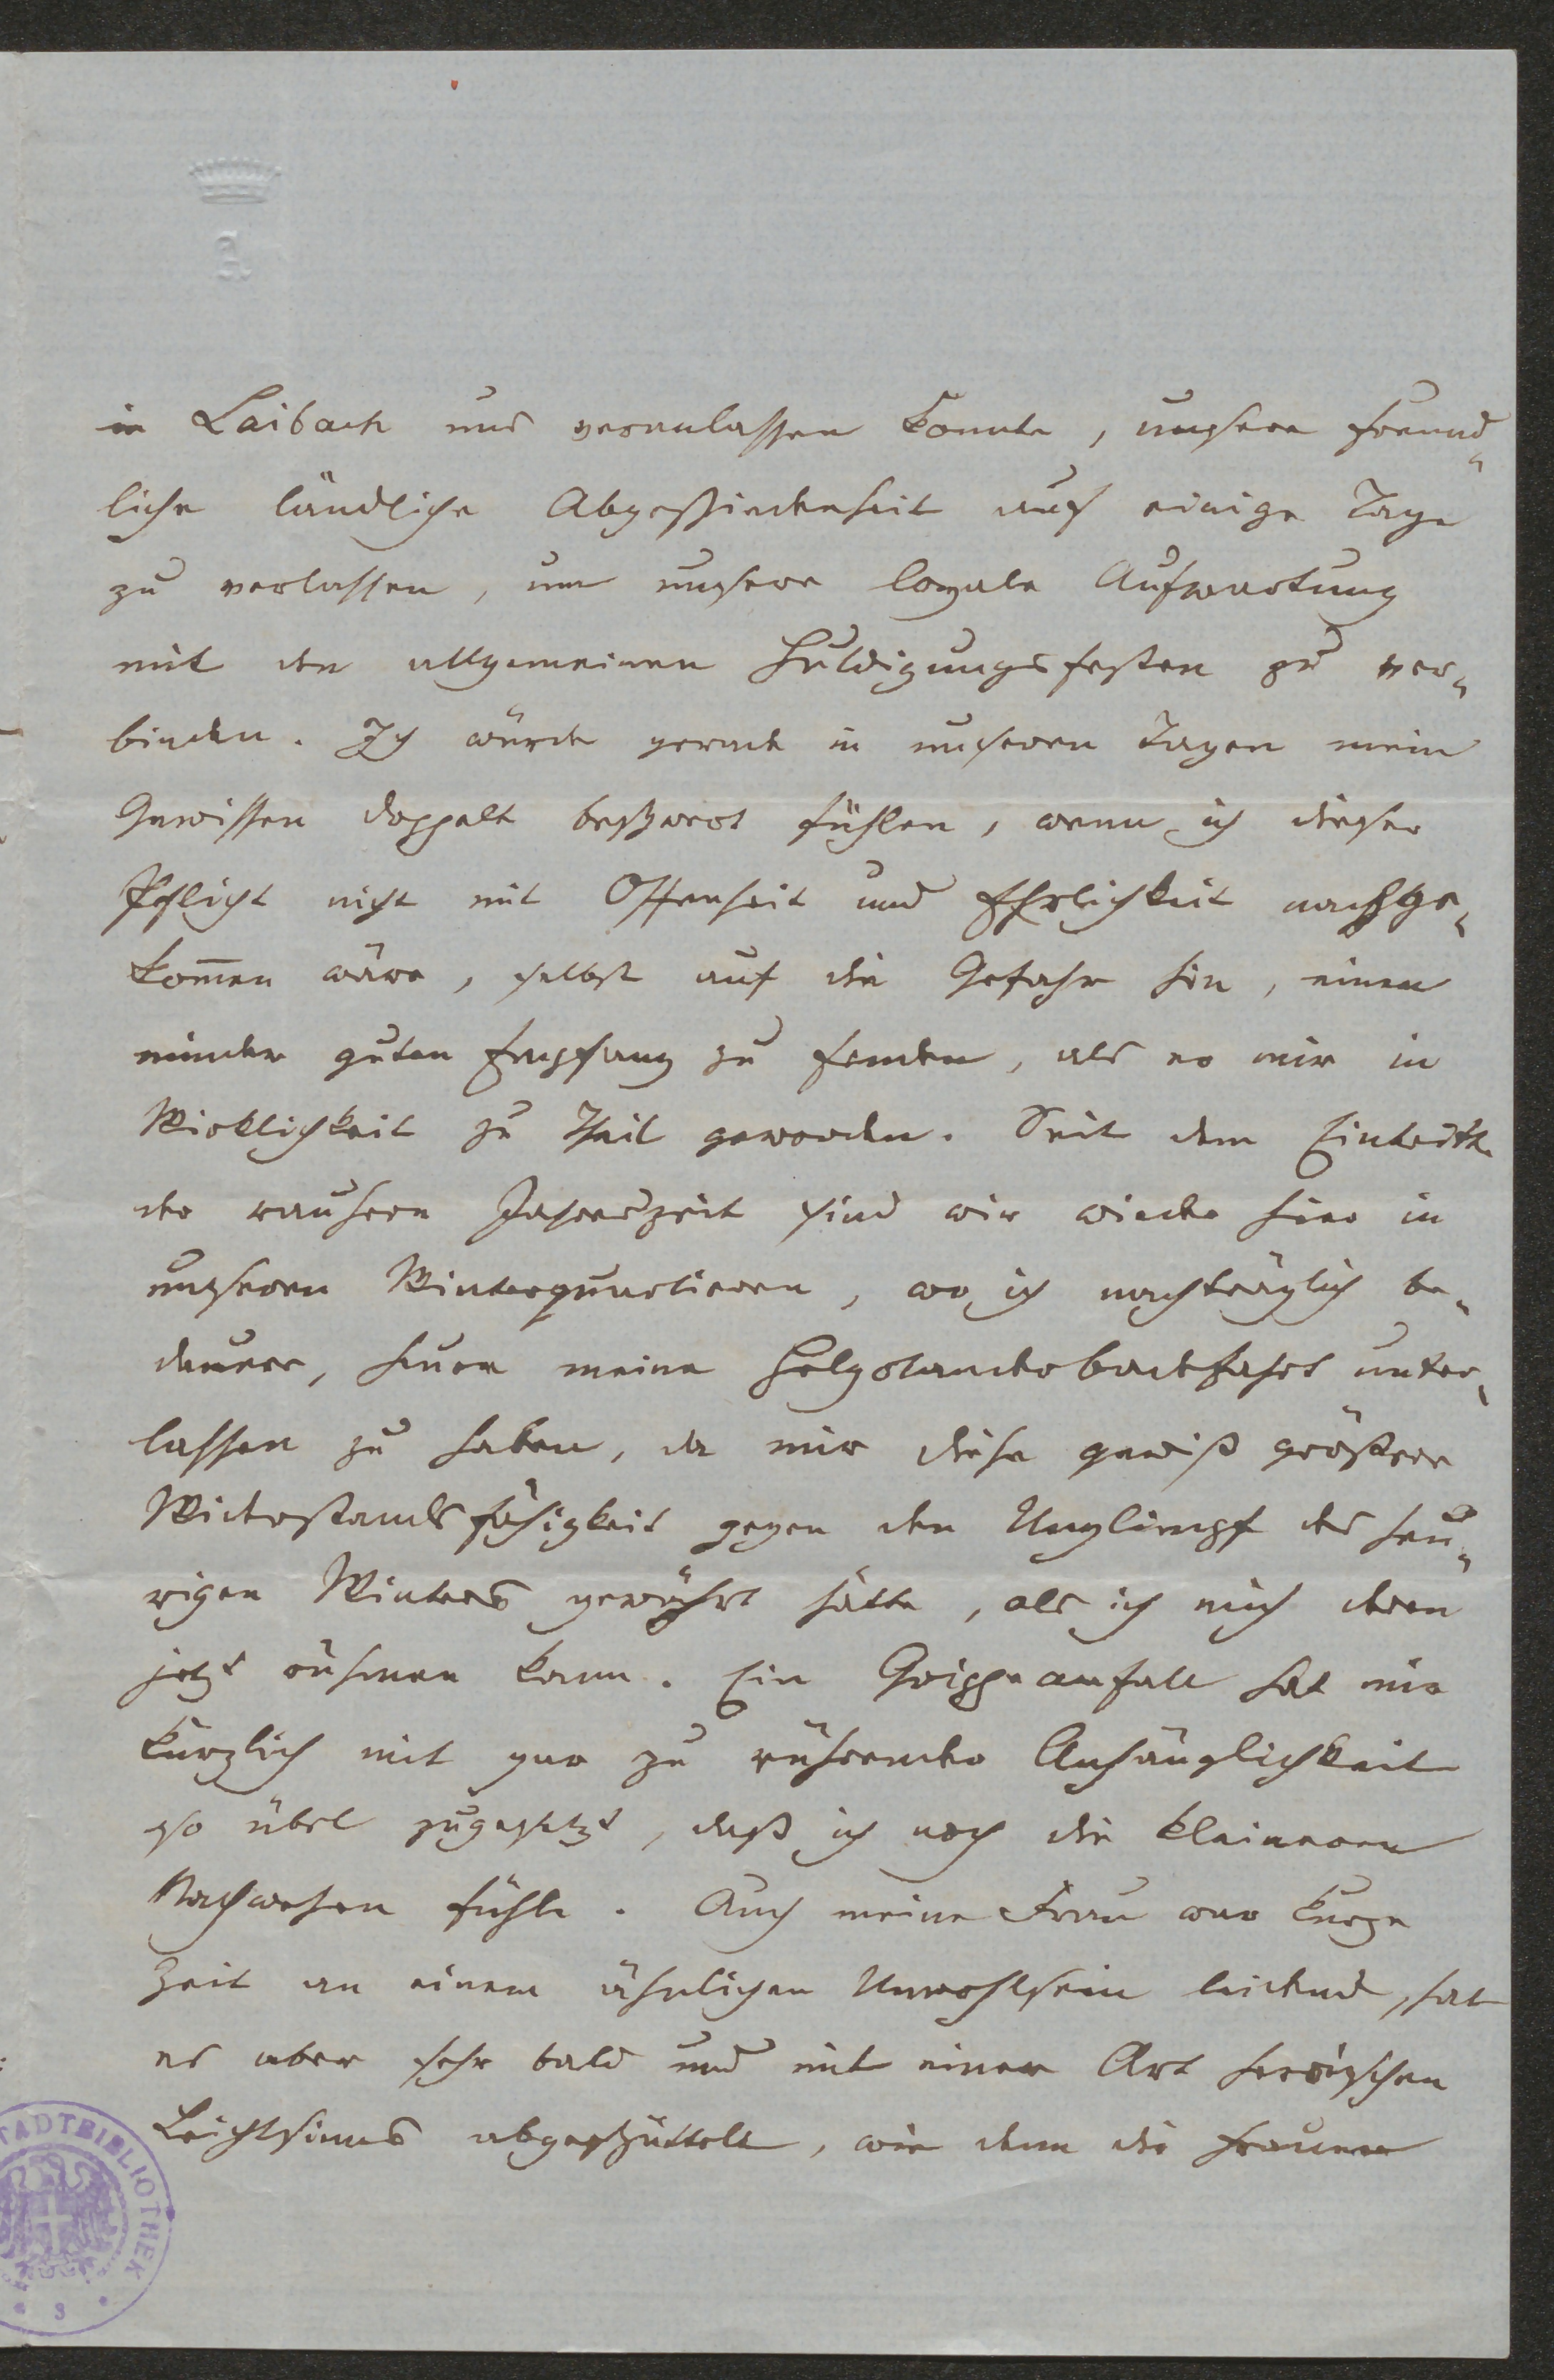 in Laibach uns veranlassen konnte, unsere freund-
liche ländliche Abgeschiedenheit auf einige Tage
zu verlassen, um unsere loyale Aufwartung
mit den allgemeinen Huldigungsfesten zu ver-
binden. Ich würde gerade in unseren Tagen mein
Gewissen doppelt beschwert fühlen, wenn ich dieser
Pflicht nicht mit Offenheit und Ehrlichkeit nachge-
kom̄en wäre, selbst auf die Gefahr hin, einen
minder guten Empfang zu finden, als er mir in
Wirklichkeit zu Theil geworden. Seit dem Eintritte
der rauhern Jahreszeit sind wir wieder hier in
unseren Winterquartieren, wo ich nachträglich be-
dauere, heuer meine Helgolanderbadefahrt unter-
lassen zu haben, da mir diese gewiß größere
Widerstandsfähigkeit gegen den Unglimpf des heu-
rigen Winters gewährt hätte, als ich mich deren
jetzt rühmen kann. Ein Grippeanfall hat mir
kürzlich mit gar zu rührender Anhänglichkeit
so übel zugesetzt, daß ich noch die kleineren
Nachwehen fühle. Auch meine Frau war kurze
Zeit an einem ähnlichen Unwohlsein leidend, hat
es aber sehr bald und mit einer Art heroischen
Leichtsinns abgeschüttelt, wie denn die Frauen
STADTBIBLIOTHEK
3